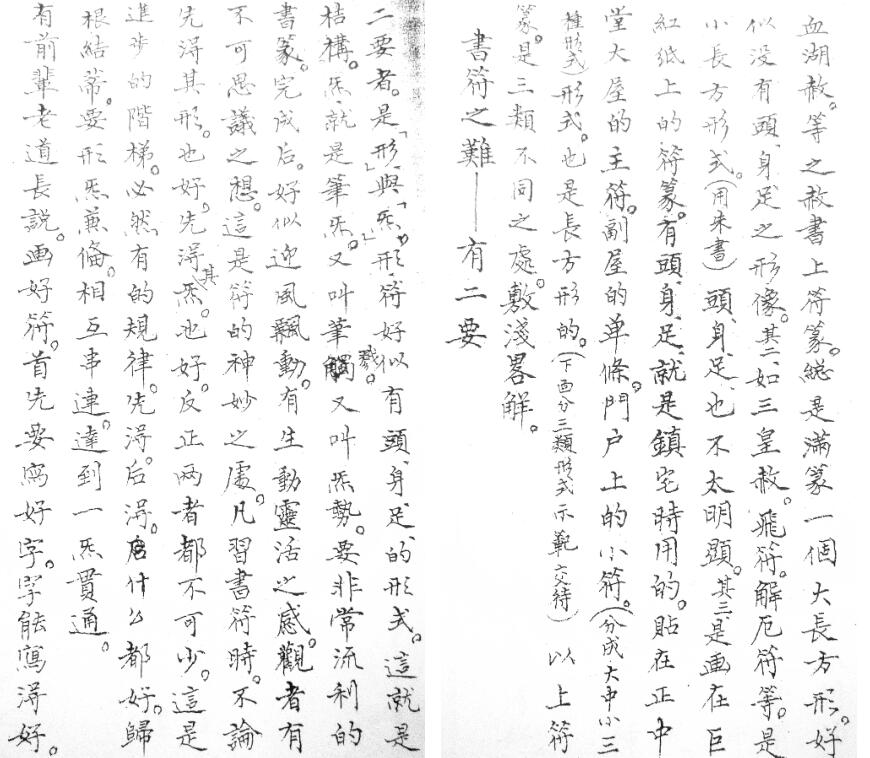 血湖赦。等之赦書上符篆。縂是滿篆一個大長方形。好
似没有頭、身、足之形像。其二、如三皇赦。飛符。解厄符等。是
小長方形式。(用朱書)頭、身、足、也不太明顯。其三、是画在巨
紅纸上的符篆。有頭、身、足、就是鎮宅時用的。貼在正中
堂大屋的主符。副屋的单條。門户上的小符。(分成大中小三
種形式)形式。也是長方形的。(下面分三類形式示範交待)以上符
篆。是三類不同之處。敷淺畧解。
書符之難——有二要
二要者。是「形」與「炁」形、符好似有頭、身、足、的形式。這就是
桔構。炁、就是筆炁。又叫筆觸。又叫炁勢。要非常流利的
書篆。完成后。好似迎風飄動。有生動靈活之感。觀者有
不可思議之想。這是符的神妙之處。凡習書符時。不論
先淂其形。也好。先淂其炁。也好。反正两者都不可少。這是
進步的階梯。必然有的規律。先淂。后淂。都好。歸
根結蒂。要形炁兼俻。相互串連。達到一炁貫通。
有前輩老道長説。画好符。首先要寫好字。字能寫淂好。